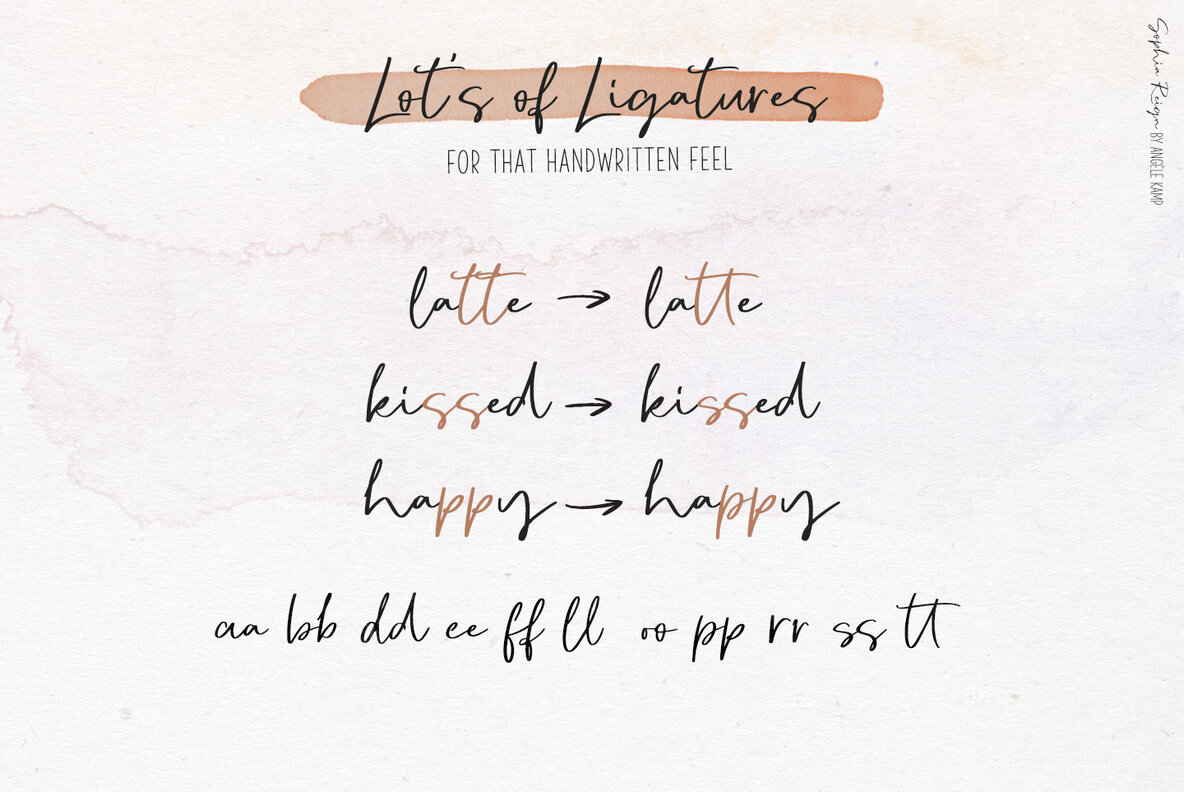 Lot's of Ligatures
FOR THAT HANDWRITTEN FEEL
latte → latte
kissed → kissed
happy → happy
aa bb dd ee ff ll oo pp rr ss tt
Sophia Reign BY ANGÈLE KAMP